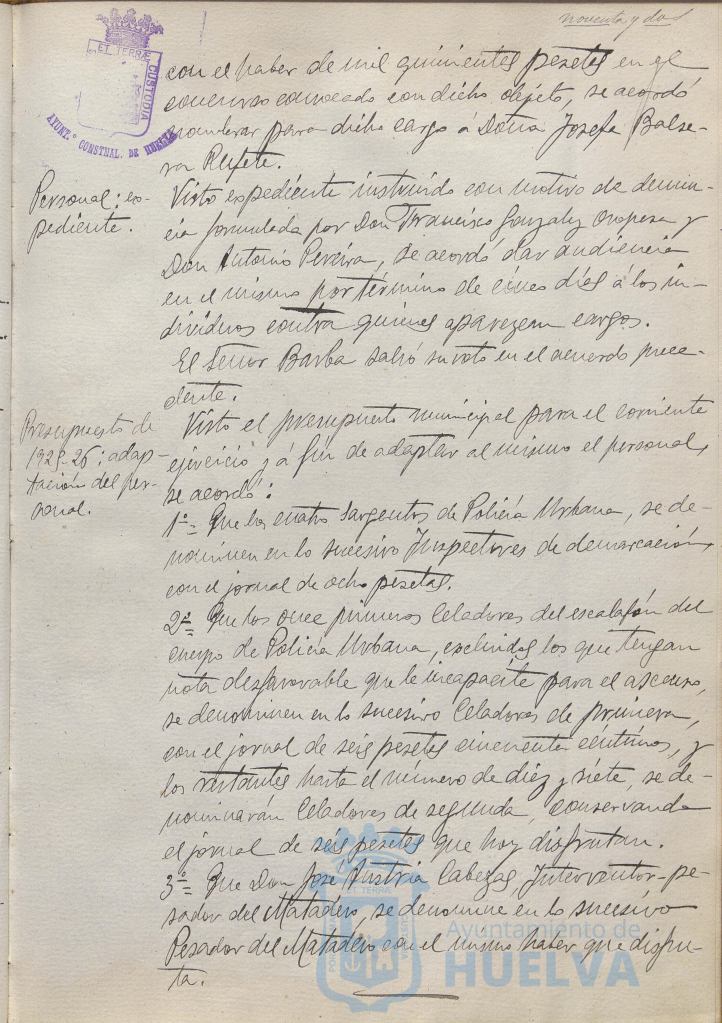 noventa y dos
ET TERRÆ
CUSTODIA
AYUNT.º CONSTNAL. DE HUELVA
con el haber de mil quinientas pesetas en el
concurso convocado con dicho objeto, se acordó
nombrar para dicho cargo á Doña Josefa Balse-
ra Rufete.
Personal: ex-
pediente.
Visto expediente instruido con motivo de denun-
cia formulada por Don Francisco Gonzalez Oropesa y
Don Antonio Pereira, se acordó dar audiencia
en el mismo por término de cinco días á los in-
dividuos contra quienes aparezcan cargos.
El Señor Barba salvó su voto en el acuerdo prece-
dente.
Presupuesto de
1925-26: adap-
tación del per-
sonal.
Visto el presupuesto municipal para el corriente
ejercicio y á fin de adaptar al mismo el personal,
se acordó:
1º= Que los cuatro Sargentos de Policía Urbana, se de-
nominen en lo sucesivo Inspectores de demarcación,
con el jornal de ocho pesetas.
2º= Que los once primeros Celadores del escalafón del
cuerpo de Policía Urbana, excluidos los que tengan
nota desfavorable que le incapacite para el ascenso,
se denominen en lo sucesivo Celadores de primera,
con el jornal de seis pesetas cincuenta céntimos, y
los restantes hasta el número de diez y siete, se de-
nominarán Celadores de segunda, conservando
el jornal de seis pesetas que hoy disfrutan.
3º= Que Don José Austria Cabezas, Interventor-pe-
sador del Matadero, se denomine en lo sucesivo
Pesador del Matadero con el mismo haber que disfru-
ta.
Ayuntamiento de
HUELVA